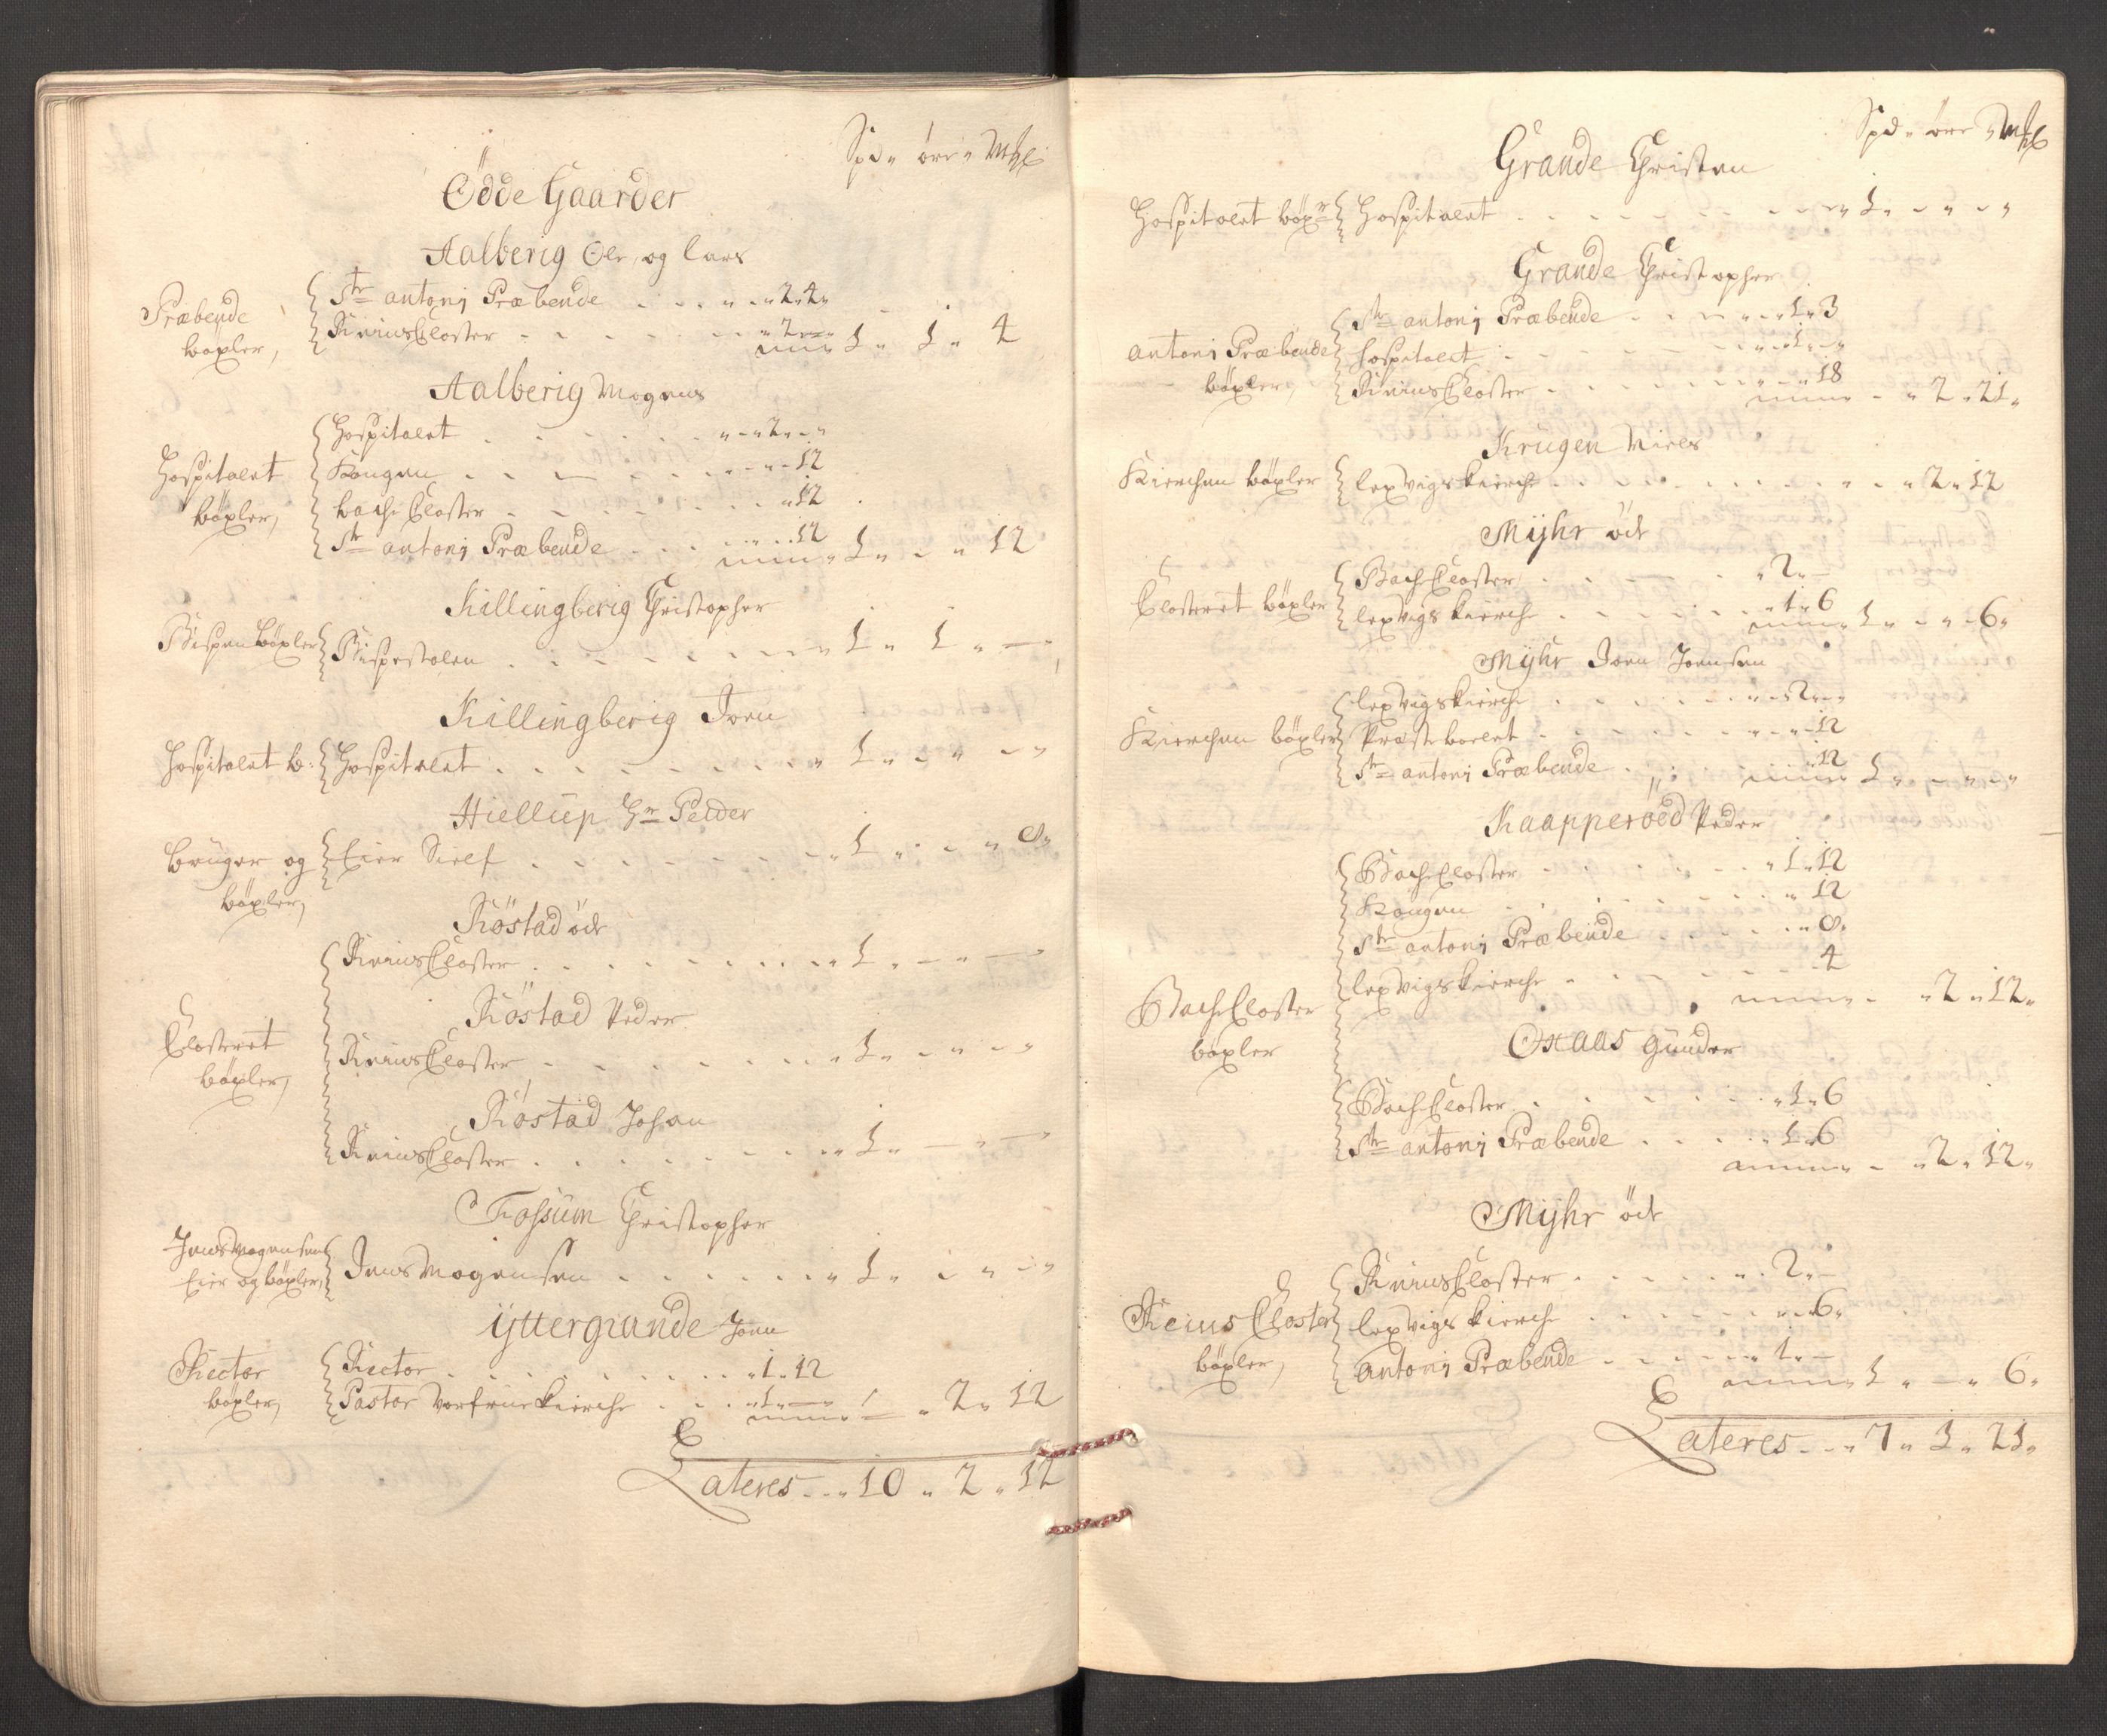 Spd „ öre „ Mkl
Ödde Gaarder
Aalberig Ole, og Lars
Præbende
böxler,
Str antonj Præbende . . . „ - „ 2 „ 4 „
Reins Closter - - - - „ 2 „ — „ 1 „ 1 „ 4
Aalberig Mogens
Hospitalet
böxler,
Hospitalet . . . . „ - „ 2 „ - „
Kongen . . . . . „ - „ - 12
bache Closter . . . . . „ 12
Str antonj Præbende . . . . . 12 „ 1 „ - „ 12
Killingberig Christopher
Bispen böxler
Bispestolen . . . . . „ 1 „ 1 „ —
Killingberig Joen
Hospitalet b:
Hospitalet . . . . . „ 1 „ - „ - „
Hiellup Hr Peider
bruger og
böxler,
Eier Sielf . . . . . „ 1 „ - „ 8 „
Röstad öde
Reins Closter . . . . . „ 1 „ — „ —
Röstad Peder
Closteret
böxler,
Reins Closter . . . . . „ 1 „ - „ - „
Röstad Johan
Reins Closter . . . . . „ 1 „ — „ —
Fossum Christopher
Jens Mogensen
Eier og böxler,
Jens Mogensen . . . . . „ 1 „ - „ - „
Yttergrande Joen
Rector
böxler,
Rector . . . . . „ 1 „ 12
Pastor Vorfrue Kierche . . . „ 1 „ — „ 2 „ 12
Lateres - - „ 10 „ 2 „ 12
Spd „ öre „ Mkl
Grande Christen
Hospitalet böxr
Hospitalet . . . . . „ 1 „ - „ - „
Grande Christopher
antoni Præbende
böxler,
Str antonj Præbende . . . „ 1 „ 3
Hospitalet . . . . . „ 1 „ - „
Reins Closter . . . . . „ 18 - „ 2 „ 21 „
Krugen Niels
Kierchen böxler
Lexvigs kierche . . . . . „ 2 „ 12
Mÿhr öde
Closteret böxler
Bache Closter . . . . . „ 2 „ —
Lexvigs kierche . . . . . „ 1 „ 6 „ 1 „ - „ 6 „
Mÿhr Joen Joensen
Kierchen böxler
Lexvigs kierche . . . . . „ 2 „ - „
Præsteboelet . . . . . „ 12
Str antonj Præbende . . . . „ 12 „ 1 „ - „ - „
Raapperöed Peder
Bache Closter . . . . . „ 1 „ 12
Kongen . . . . . „ 12
Str antonj Præbende . . . . „ 8 „
Lexvigs kierche . . . . . 4 - „ 2 „ 12 „
Bache Closter
böxler
Gunder
Bache Closter . . . . . „ 1 „ 6
Str antonj Præbende . . . . „ 1 „ 6 - „ 2 „ 12 „
Mÿhr öde
Reins Closter
böxler,
Reins Closter . . . . . „ 2 „ —
Lexvigs kierche . . . . . „ 6 „
Antonj Præbende . . . . „ 1 „ — „ 1 „ — „ 6 „
Lateres - - „ 7 „ 1 „ 21 „